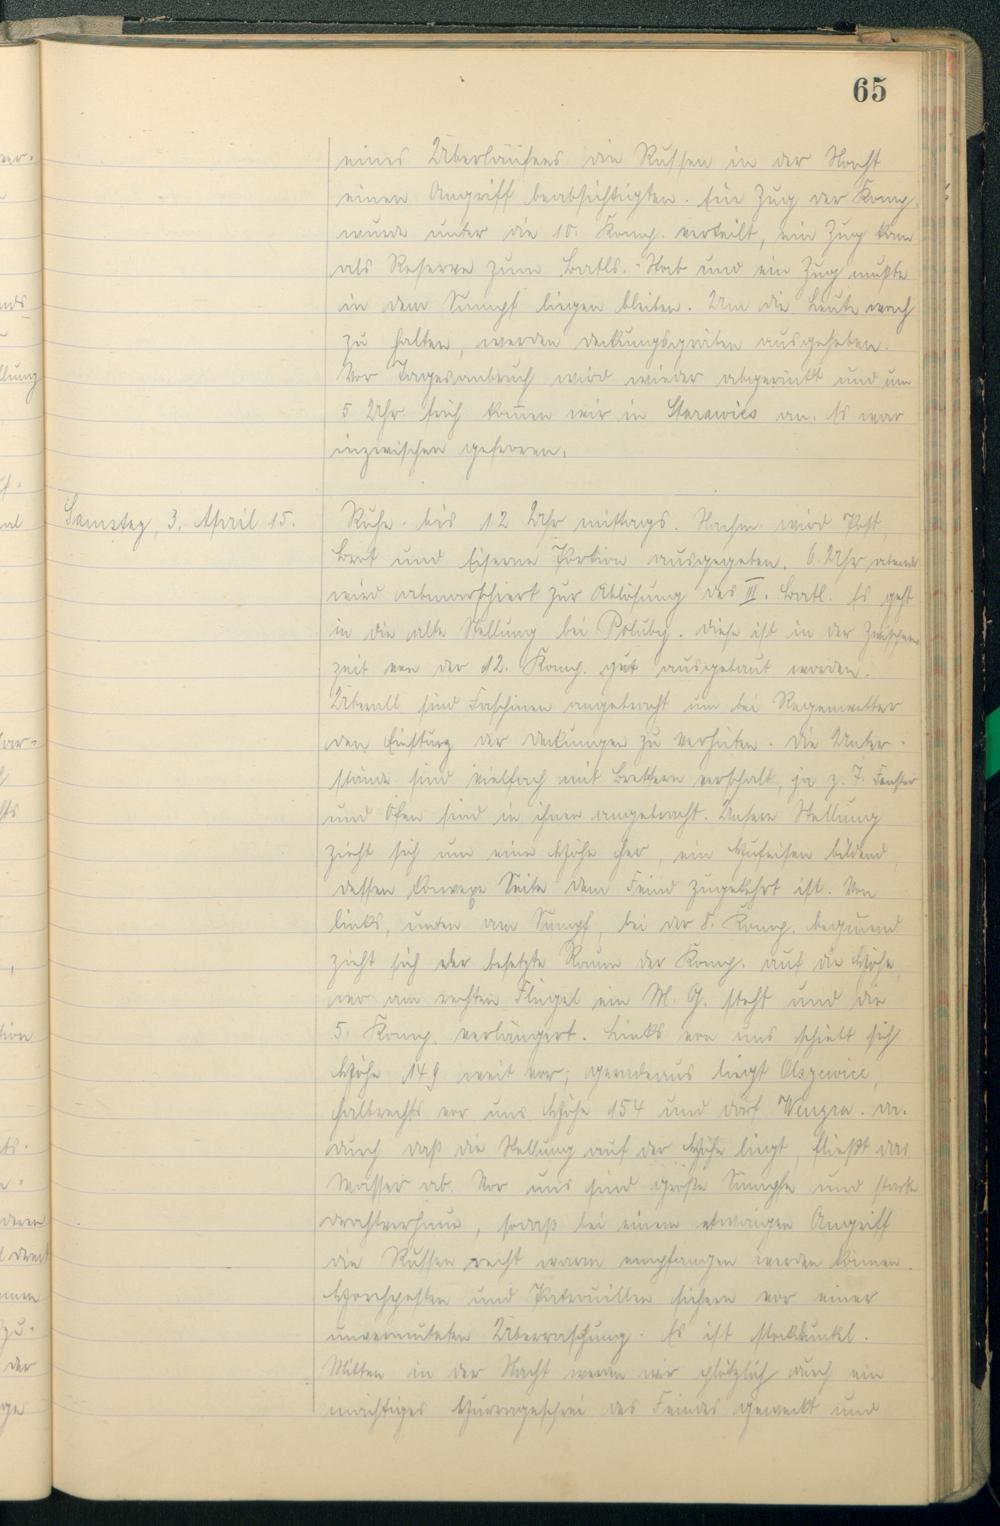 65
eines Überläufers die Russen in der Nacht
einen Angriff beabsichtigten. Ein Zug der Komp.
wurde unter die 10. Komp. verteilt, ein Zug kam
als Reserve zum Batls.-Stab und ein Zug mußte
in dem Sumpf liegen bleiben. Um die Leute wach
zu halten, werden Deckungsgräben ausgehoben.
Vor Tagesanbruch wird wieder abgerückt und um
5 Uhr früh kommen wir in Starawies an. Es war
inzwischen gefroren.
Samstag, 3. April 15.
Ruhe bis 12 Uhr mittags. Nachm. wird Post,
Brot und Eiserne Portion ausgegeben. 6 Uhr abends
wird abmarschiert zur Ablösung des III. Batl. Es geht
in die alte Stellung bei Poluby. Diese ist in der Zwischen
zeit von der 12. Komp. gut ausgebaut worden.
Überall sind Faschinen angebracht um bei Regenwetter
den Einsturz der Deckungen zu verhüten. Die Unter-
stände sind vielfach mit Brettern verschalt, ja z. T. Fenster
und Öfen sind in ihnen angebracht. Unsere Stellung
zieht sich um eine Höhe her, ein Hufeisen bildend,
dessen konvexe Seite dem Feind zugekehrt ist. Von
links, unten am Sumpf, bei der 8. Komp. beginnend
zieht sich der besetzte Raum der Komp. auf die Höhe,
wo am rechten Flügel ein M. G. steht und die
5. Komp. verlängert. Links von uns schiebt sich
Höhe 149 weit vor; geradeaus liegt Olszewice,
halbrechts vor uns Höhe 154 und Dorf. Da-
durch daß die Stellung auf der Höhe liegt, fließt das
Wasser ab. Vor uns sind große Sümpfe und starke
Drahtverhaue, sodaß bei einem etwaigen Angriff
die Russen recht warm empfangen werden können.
Horchposten und Patrouillen sichern vor einer
unvermuteten Überraschung. Es ist stockdunkel.
Mitten in der Nacht werden wir plötzlich durch ein
mächtiges Hurrageschrei des Feindes geweckt und